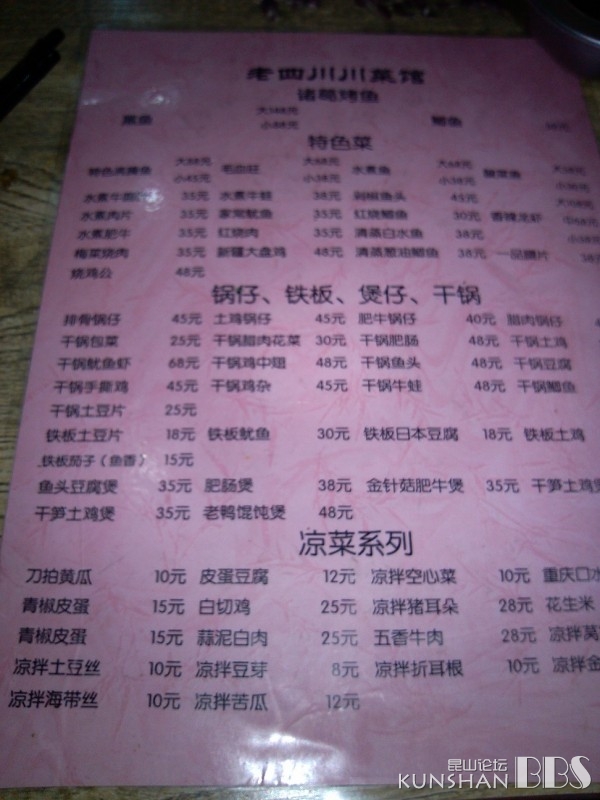 老四川川菜馆
诸葛烤鱼
黑鱼 大188元 鲫鱼
小88元
特色菜
特色肉腌鱼 大88元 毛血旺 大68元 水煮鱼 大68元 酸菜鱼 大58元
小45元 小38元 小38元 小30元
水煮牛蛙 35元 水煮牛蛙 38元 剁椒鱼头 45元 大108元
水煮肉片 35元 家常鱿鱼 35元 红烧鲫鱼 30元 香辣龙虾 中68元
水煮肥牛 35元 红烧肉 35元 清蒸白水鱼 38元 小38元
梅菜烧肉 35元 新疆大盘鸡 48元 清蒸葱油鲫鱼 38元 一品腰片 38元
烧鸡公 48元
锅仔、铁板、煲仔、干锅
排骨锅仔 45元 土鸡锅仔 45元 肥牛锅仔 40元 腊肉锅仔
干锅包菜 25元 干锅腊肉花菜 30元 干锅肥肠 48元 干锅土鸡
干锅鱿鱼虾 68元 干锅鸡中翅 48元 干锅鱼头 48元 干锅豆腐
干锅手撕鸡 45元 干锅鸡杂 45元 干锅牛蛙 48元 干锅鲫鱼
干锅土豆片 25元
铁板土豆片 18元 铁板鱿鱼 30元 铁板日本豆腐 18元 铁板土鸡
铁板茄子（鱼香） 15元
鱼头豆腐煲 35元 肥肠煲 38元 金针菇肥牛煲 35元 干笋土鸡
干笋土鸡煲 35元 老鸭馄饨煲 48元
凉菜系列
刀拍黄瓜 10元 皮蛋豆腐 12元 凉拌空心菜 10元 重庆口水
青椒皮蛋 15元 白切鸡 25元 凉拌猪耳朵 28元 花生米
青椒皮蛋 15元 蒜泥白肉 25元 五香牛肉 28元 凉拌莴
凉拌土豆丝 10元 凉拌豆芽 8元 凉拌折耳根 10元 凉拌金
凉拌海带丝 10元 凉拌苦瓜 12元
昆山论坛
KUNSHAN BBS